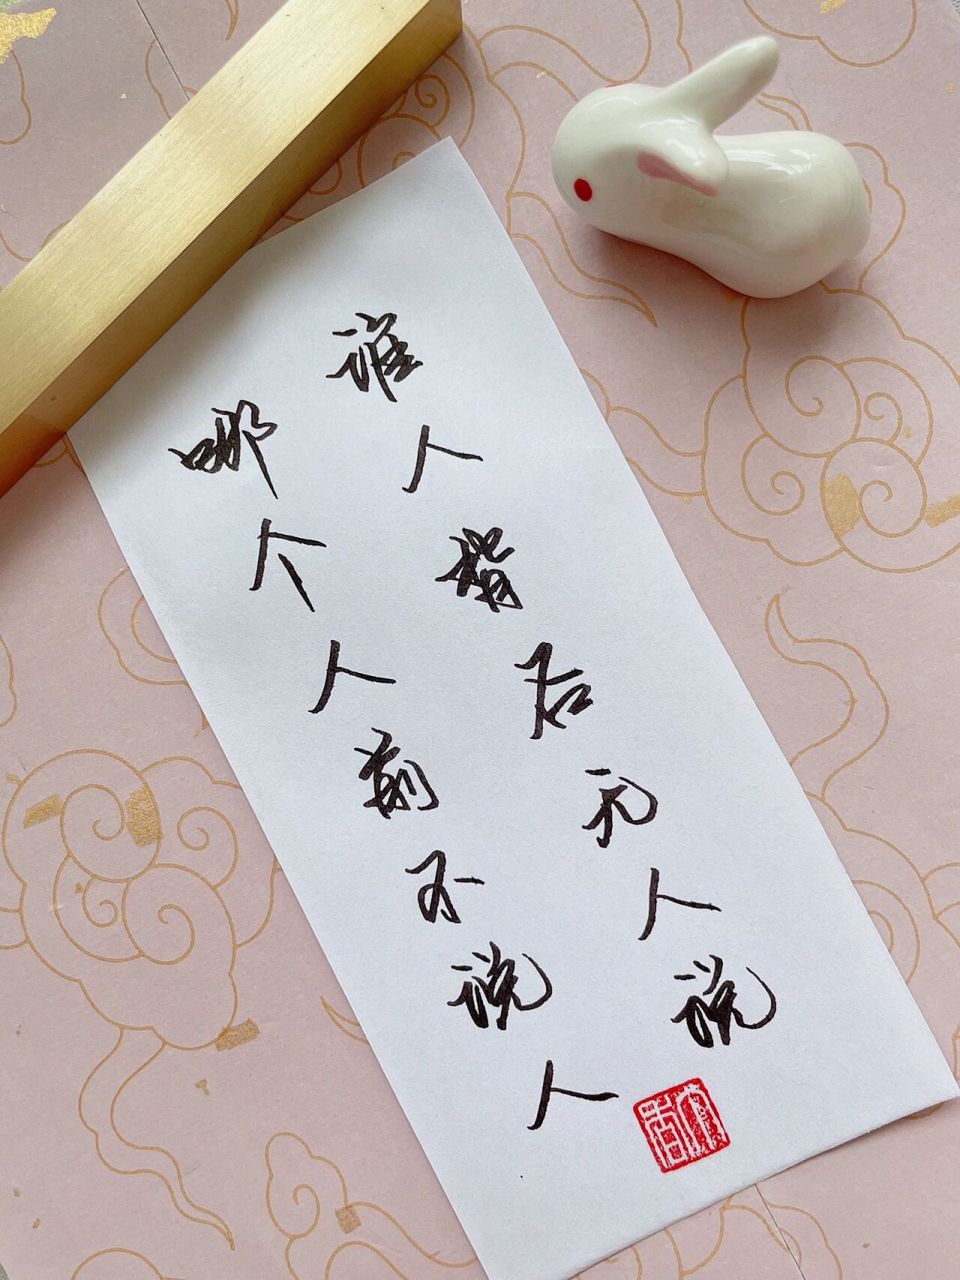 谁人背后无人说
哪个人前不说人